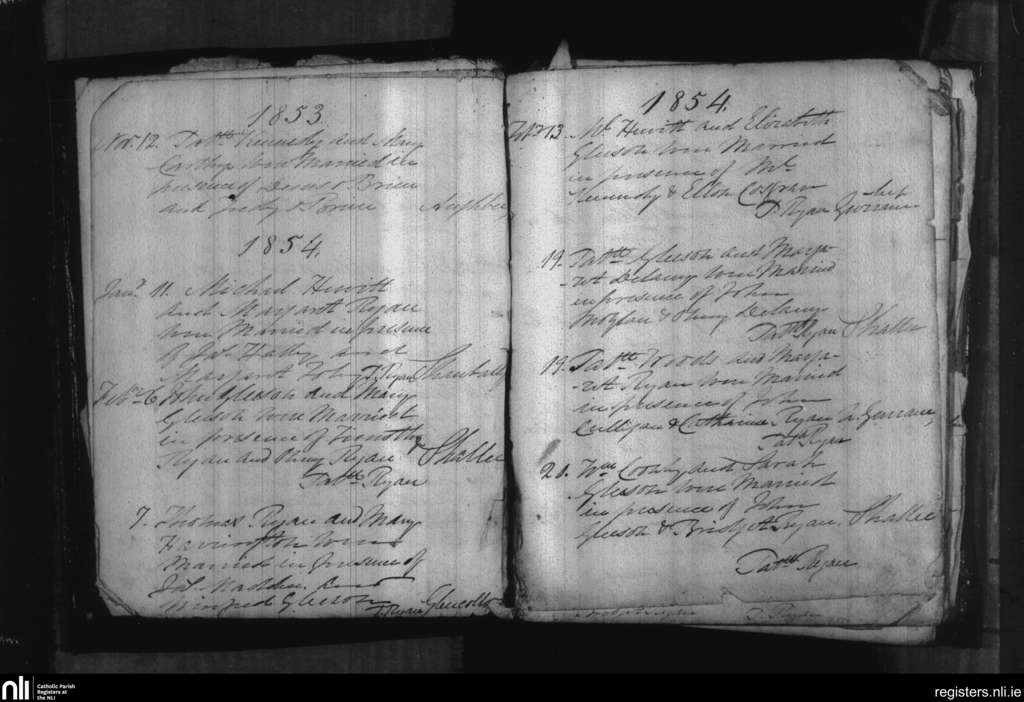 1853
Nov. 12. Patk Kennedy and Mary
Carthy were Married in
presence of Denis O Brien
and Judy O Brien
1854.
Jany. 11. Michael Hewitt
and Margaret Ryan
were Married in presence
of Jas. Hally and
Margaret T. Ryan Shanbally
Feby. 6. John Gleeson and Mary
Gleeson were Married
in presence of Timothy
Ryan and Ryan Shallee
Patk Ryan
7. Thomas Ryan and Mary
Harrington were
Married in presence of
Madden and
Winifred Gleeson T. Ryan
1854.
13. Ml. Hewitt and Elizabeth
Gleeson were Married
in presence of Ml.
Kennedy & Ellen
P. Ryan
19. Patk Gleeson and Marga-
-ret Delany were Married
in presence of John
Moylan & Delany
Patk Ryan Shallee
19. Patk Woods and Marga-
-ret Ryan were Married
in presence of John
Culligan & Catharine Ryan
Patk Ryan
20. Wm and Sarah
Gleeson were Married
in presence of John
Gleeson & Bridget Ryan. Shallee
Patk Ryan
P. Ryan
nli Catholic Parish
Registers at
the NLI
registers.nli.ie